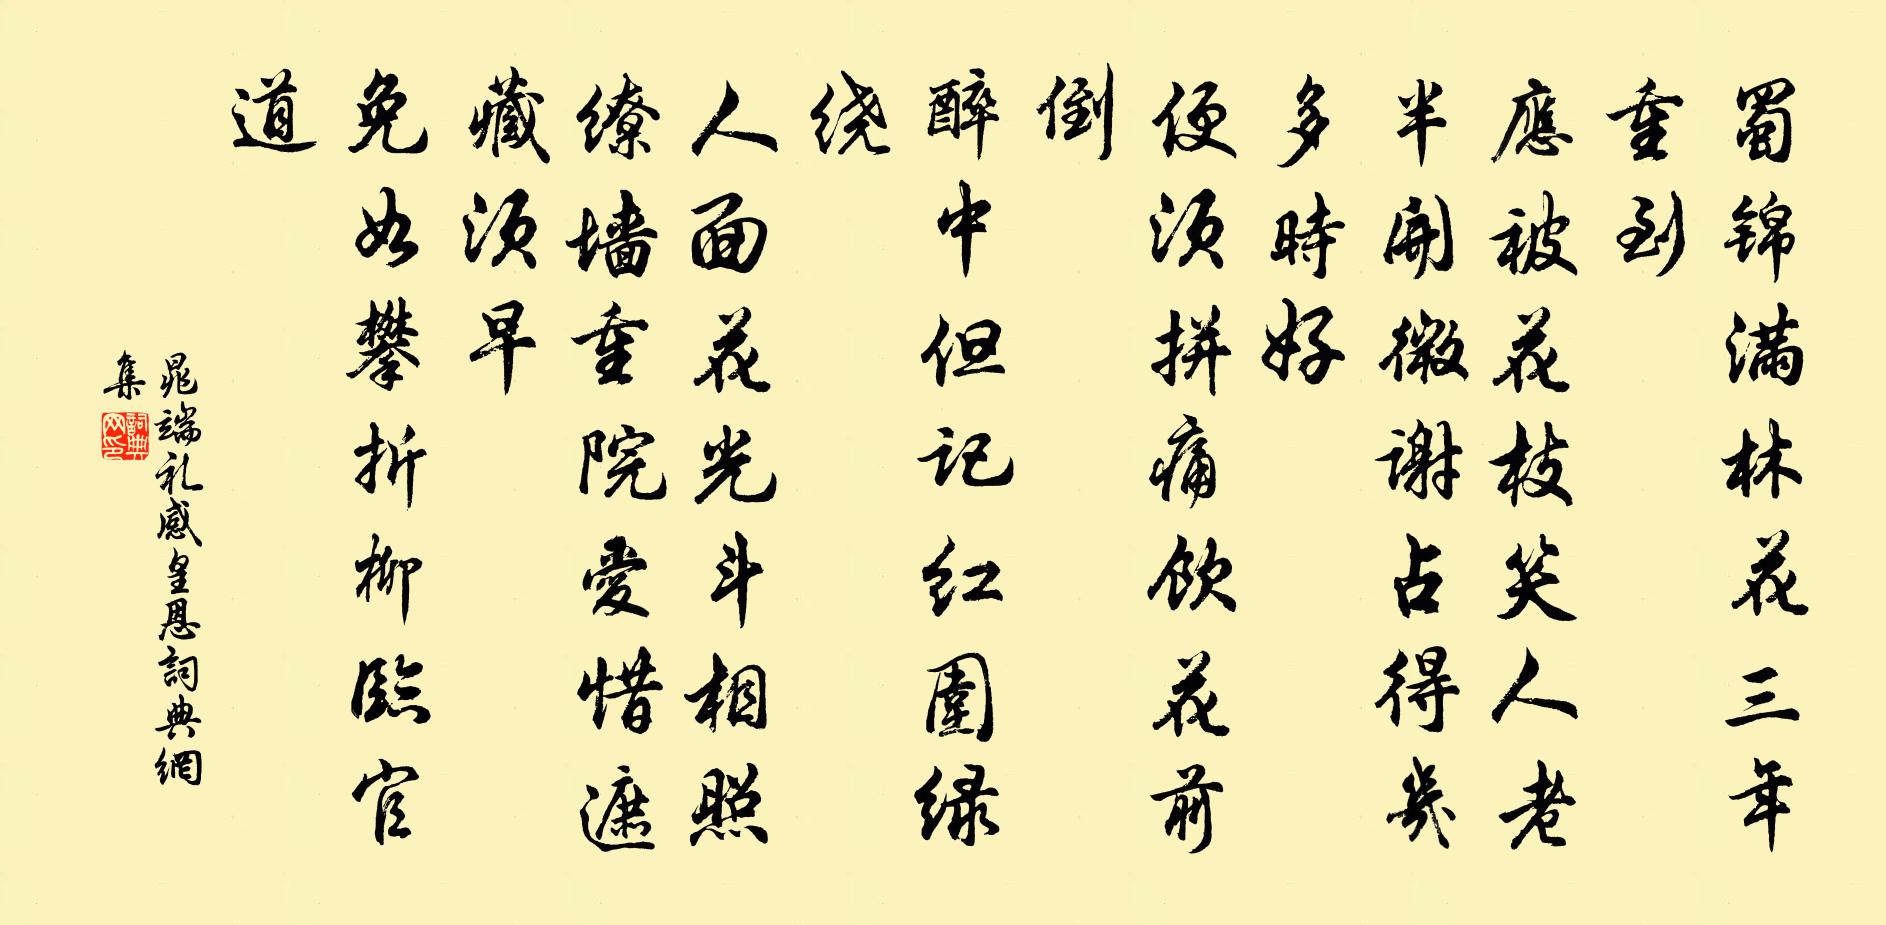 蜀锦满林花三年
重到
應被花枝笑人老
半開微謝占得幾
多時好
便须拼痛飲花前
倒
醉中但记红圍绿
绕
人面花光斗相照
缭墙重院愛惜遮
藏须早
免如攀折柳臨官
道
晁端礼感皇恩詞典網
集
詞典网印